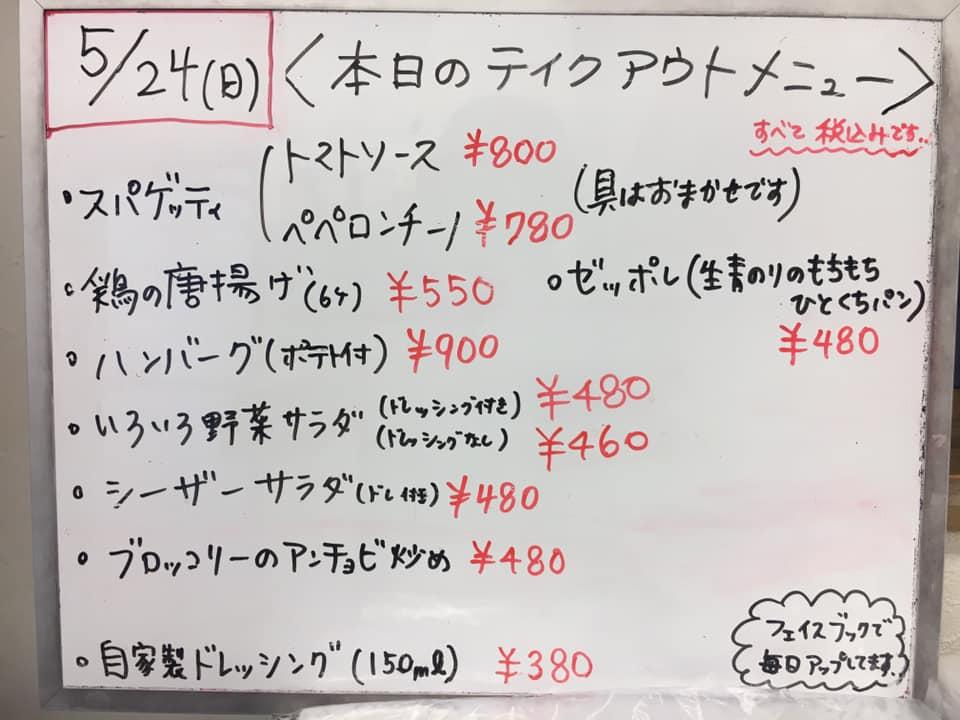 5/24(日) 〈本日のテイクアウトメニュー〉
すべて税込みです。
・スパゲッティ (トマトソース ¥800
ペペロンチーノ ¥780
(具はおまかせです)
・鶏の唐揚げ(6ケ) ¥550
・ゼッポレ(生青のりのもちもち
ひとくちパン)
¥480
・ハンバーグ(ポテト付) ¥900
・いろいろ野菜サラダ (ドレッシング付き) ¥480
(ドレッシングなし) ¥460
・シーザーサラダ(ドレ付き) ¥480
・ブロッコリーのアンチョビ炒め ¥480
・自家製ドレッシング(150ml) ¥380
フェイスブックで
毎日アップしてます。